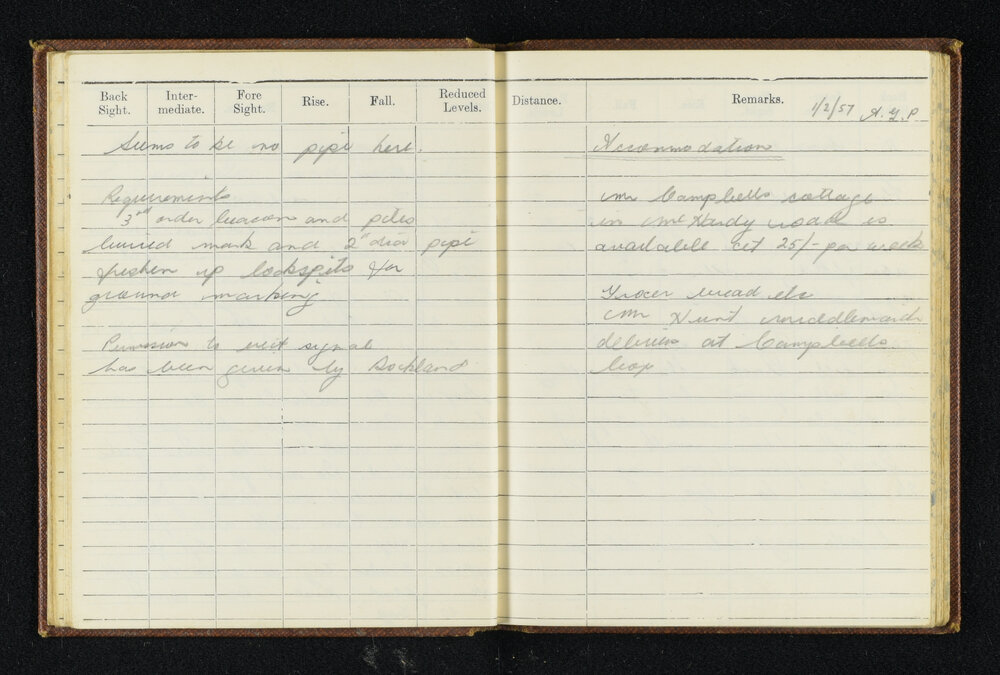 Back Sight.
Inter-mediate.
Fore Sight.
Rise.
Fall.
Reduced Levels.
Distance.
Remarks.
1/2/57
Seems to be no pipe here.
Requirements
3rd order beacon and piles
buried mark and 2" dia pipe
freshen up lockspits for
ground marking
Permission to erect signal
has been given by
Accommodation
Mr Campbells cottage
in Mt Hardy road is
available at 25/- per week
Grocer bread etc
Mr Hunt Middlemarch
delivers at Campbells
box